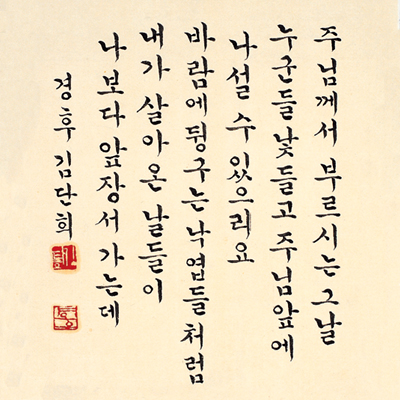 주님께서 부르시는 그날
누군들 낯들고 주님앞에
나설 수 있으리요
바람에 뒹구는 낙엽들처럼
내가 살아온 날들이
나보다 앞장서 가는데
경후 김단희